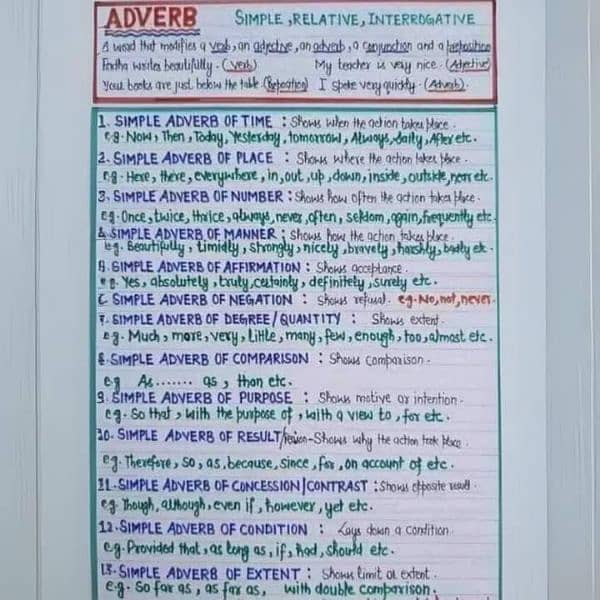 ADVERB SIMPLE, RELATIVE, INTERROGATIVE
A word that modifies a verb, an adjective, an adverb, a conjunction and a preposition
writes beautifully. (verb) My teacher is very nice. (Adjective)
Your books are just below the table. (Preposition) I spoke very quickly. (Adverb).
1. SIMPLE ADVERB OF TIME : Shows when the action takes place.
e.g. Now, Then, Today, Yesterday, tomorrow, Always, daily, After etc.
2. SIMPLE ADVERB OF PLACE : Shows where the action takes place.
e.g. Here, there, everywhere, in, out, up, down, inside, outside, near etc.
3. SIMPLE ADVERB OF NUMBER : Shows how often the action takes place.
e.g. Once, twice, thrice, always, never, often, seldom, again, frequently etc.
4. SIMPLE ADVERB OF MANNER ; Shows how the action takes place
e.g. Beautifully, timidly, strongly, nicely, bravely, harshly, badly etc.
SIMPLE ADVERB OF AFFIRMATION : Shows acceptance.
e.g. Yes, absolutely, truly, certainly, definitely, surely etc.
6. SIMPLE ADVERB OF NEGATION : Shows refusal. e.g. No, not, never.
7. SIMPLE ADVERB OF DEGREE/QUANTITY : Shows extent.
e.g. Much, more, very, little, many, few, enough, too, almost etc.
8. SIMPLE ADVERB OF COMPARISON : Shows comparison.
e.g As....... as, than etc.
9. SIMPLE ADVERB OF PURPOSE : Shows motive or intention.
e.g. So that, with the purpose of, with a view to, for etc.
10. SIMPLE ADVERB OF RESULT/Reason - Shows why the action took place.
e.g. Therefore, so, as, because, since, for, on account of etc.
11. SIMPLE ADVERB OF CONCESSION/CONTRAST : Shows opposite result.
e.g. Though, although, even if, however, yet etc.
12. SIMPLE ADVERB OF CONDITION : Lays down a condition.
e.g. Provided that, as long as, if, had, should etc.
13. SIMPLE ADVERB OF EXTENT : Shows limit or extent.
e.g. So far as, as far as, with double comparison.